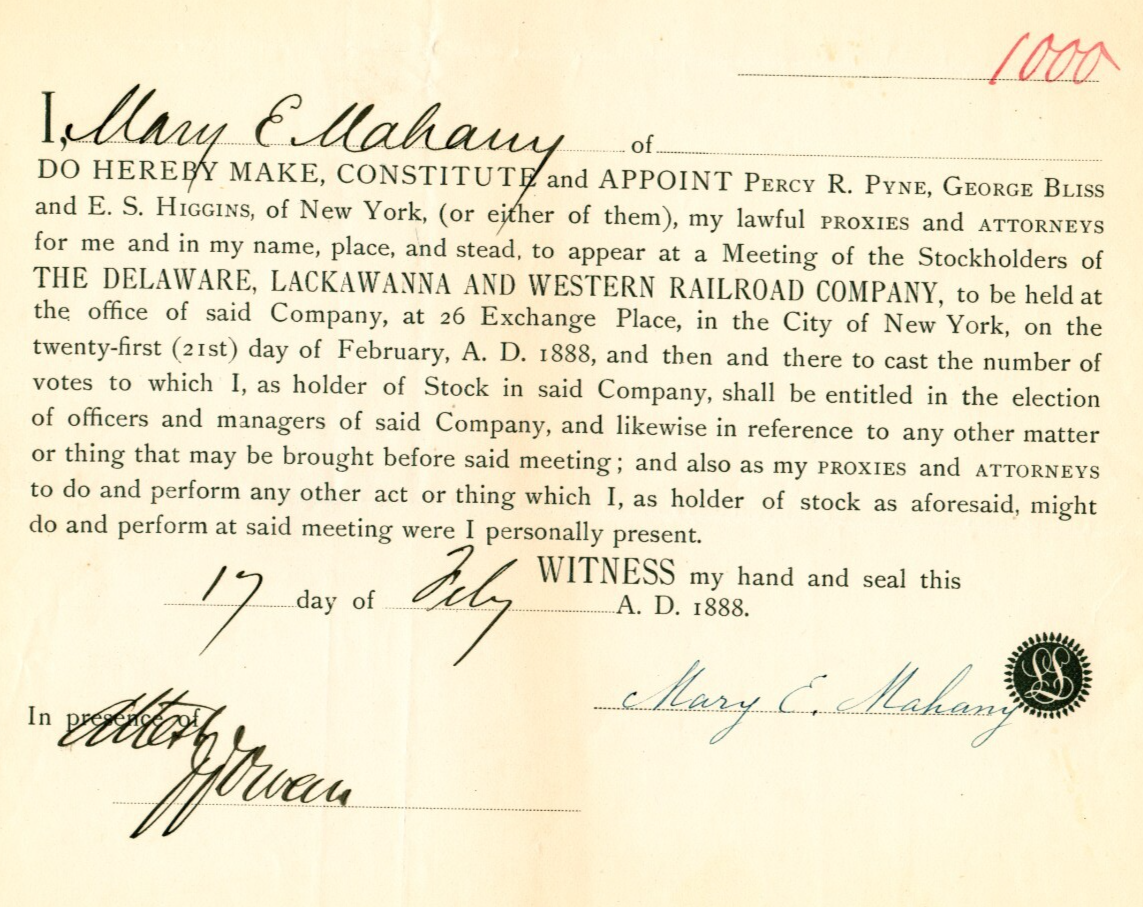 1000
I, Mary E Mahany of
DO HEREBY MAKE, CONSTITUTE and APPOINT PERCY R. PYNE, GEORGE BLISS
and E. S. HIGGINS, of New York, (or either of them), my lawful PROXIES and ATTORNEYS
for me and in my name, place, and stead, to appear at a Meeting of the Stockholders of
THE DELAWARE, LACKAWANNA AND WESTERN RAILROAD COMPANY, to be held at
the office of said Company, at 26 Exchange Place, in the City of New York, on the
twenty-first (21st) day of February, A. D. 1888, and then and there to cast the number of
votes to which I, as holder of Stock in said Company, shall be entitled in the election
of officers and managers of said Company, and likewise in reference to any other matter
or thing that may be brought before said meeting; and also as my PROXIES and ATTORNEYS
to do and perform any other act or thing which I, as holder of stock as aforesaid, might
do and perform at said meeting were I personally present.
WITNESS my hand and seal this
17 day of Feby A. D. 1888.
Mary E. Mahany
LS
In presence of
Attest